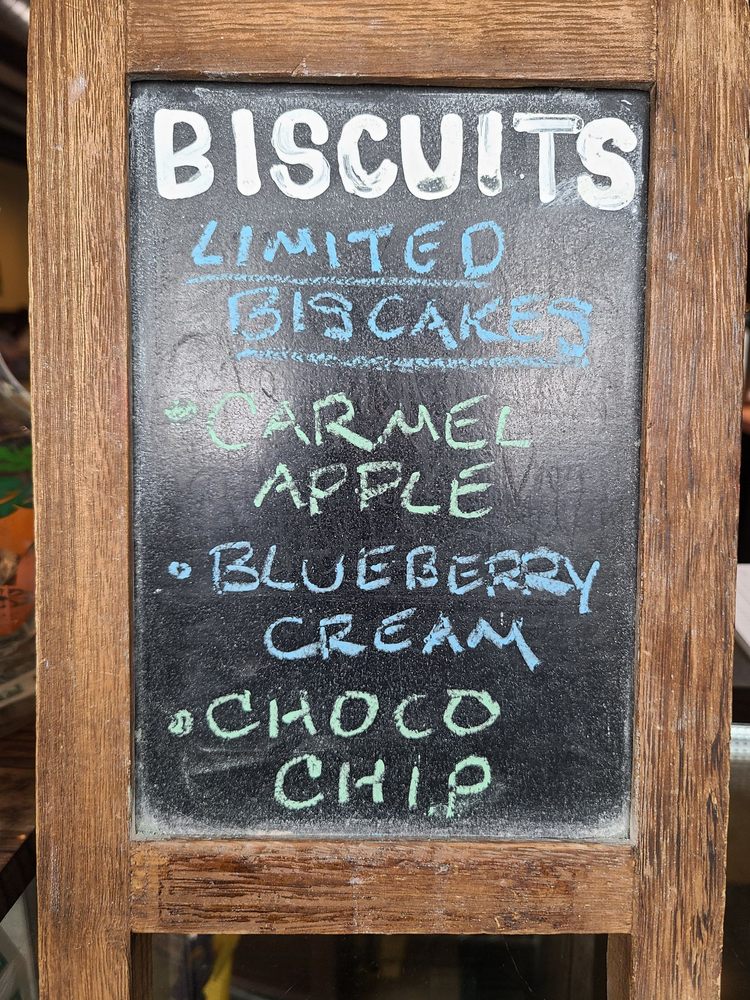 BISCUITS
LIMITED
BISCAKES
• CARMEL
APPLE
• BLUEBERRY
CREAM
• CHOCO
CHIP